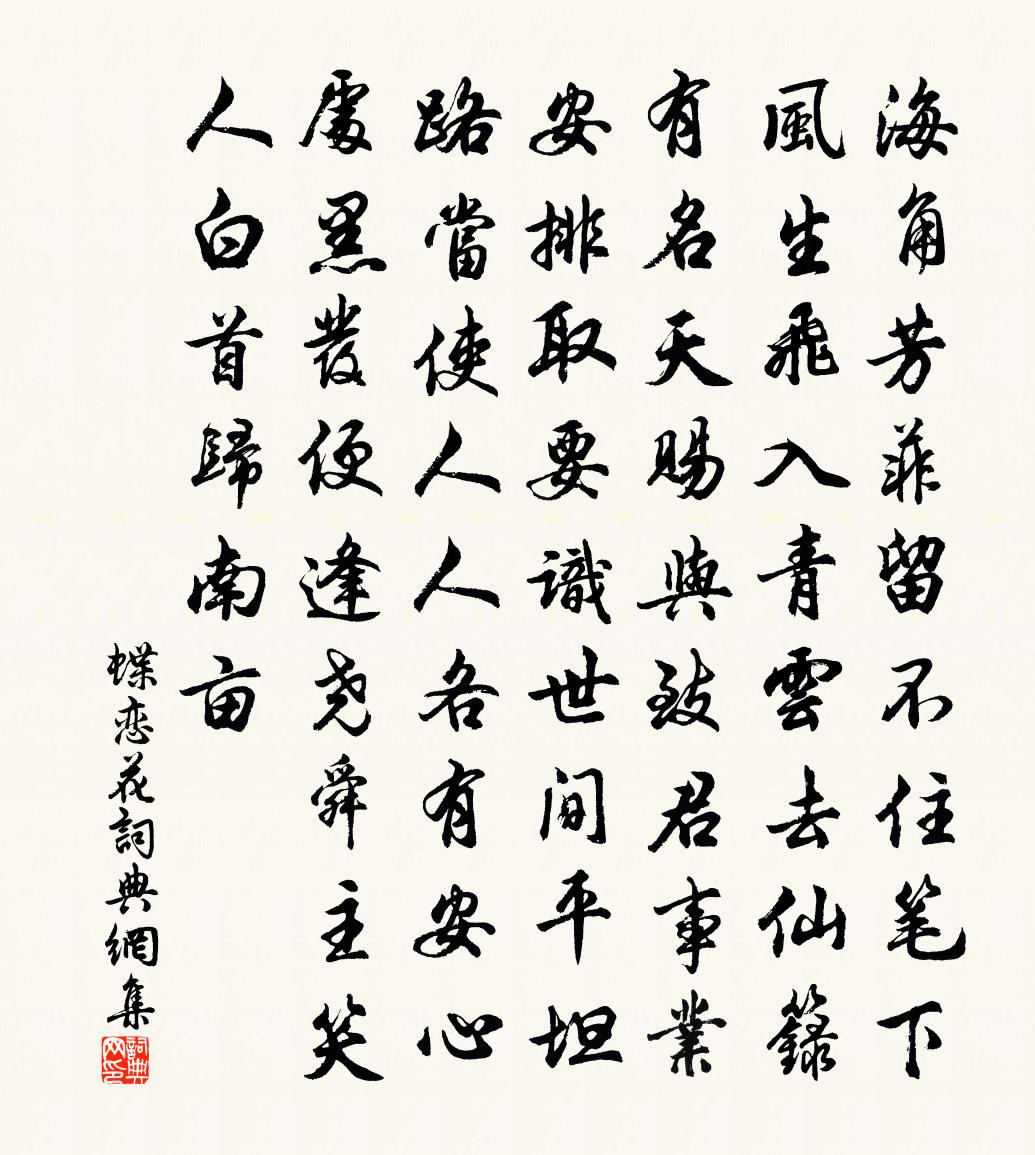 海角芳菲留不住笔下
風生飛入青雲去仙籙
有名天賜與致君事業
安排取要識世間平坦
路當使人人各有安心
處黑發便逢尧舜主笑
人白首歸南亩
蝶恋花詞典網集
詞典网印